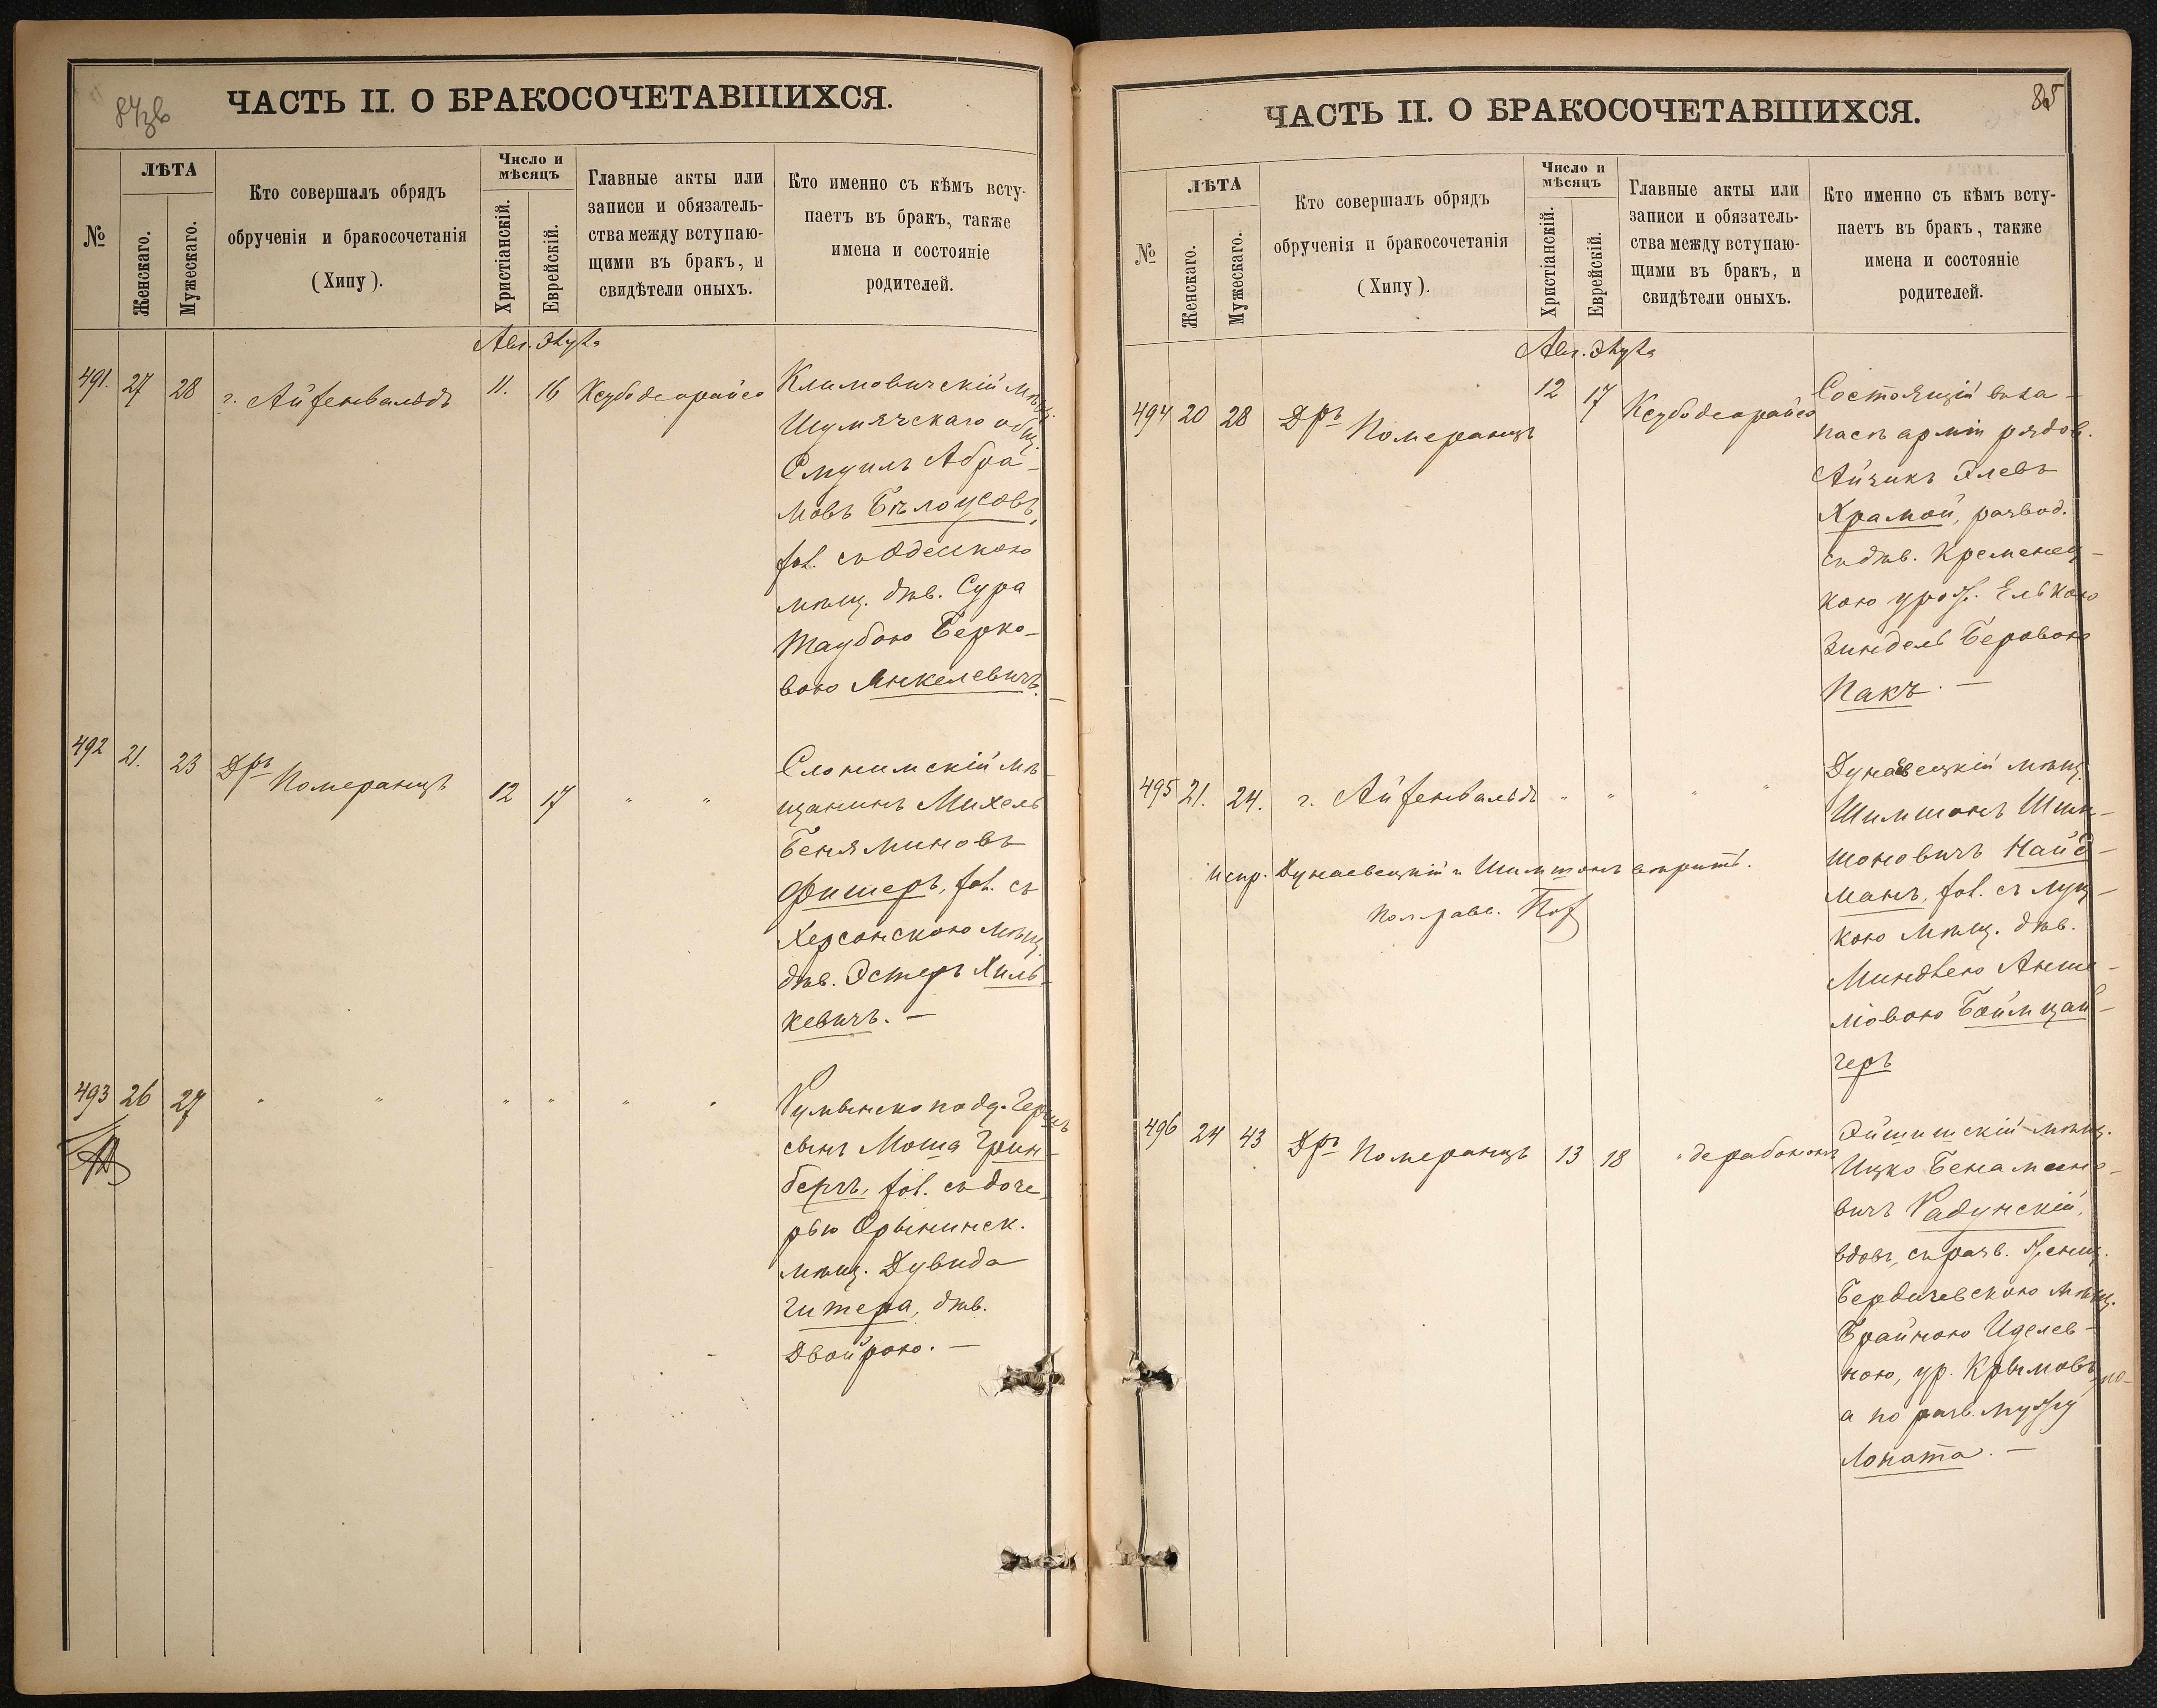 84зв
ЧАСТЬ II. О БРАКОСОЧЕТАВШИХСЯ.
№
ЛѢТА
Женскаго.
Мужескаго.
Кто совершалъ обрядъ
обрученія и бракосочетанія
(Хипу).
Число и
мѣсяцъ
Христіанскій.
Еврейскій.
Главные акты или
записи и обязатель-
ства между вступаю-
щими въ бракъ, и
свидѣтели оныхъ.
Кто именно съ кѣмъ всту-
паетъ въ бракъ, также
имена и состояніе
родителей.
491. 27 28 г. Айзенвальдъ 11. 16 Ксубо деорайсо
Климовичскій мѣщ.
Шумячскаго общ.
Смуилъ Абра-
мовъ Бѣлоусовъ,
хол. съ Одесскою
мѣщ. дѣв. Сура
Таубою Берко-
вою Янкелевичъ. –
492 21. 23 Дръ Померанцъ 12 17 " "
Слонимскій мѣ-
щанинъ Михель
Беняминовъ
Фишеръ, хол. съ
Херсонскою мѣщ.
дѣв. Эстеръ Хиль-
кевичъ. –
493 26 27 " " " " " "
Румынско подд.
сынъ Моша Грин-
бергъ, хол. съ доче-
рью Орынинск.
мѣщ. Дувида
Гитера, дѣв.
Двойрою. –
85
ЧАСТЬ II. О БРАКОСОЧЕТАВШИХСЯ.
№
ЛѢТА
Женскаго.
Мужескаго.
Кто совершалъ обрядъ
обрученія и бракосочетанія
(Хипу).
Число и
мѣсяцъ
Христіанскій.
Еврейскій.
Главные акты или
записи и обязатель-
ства между вступаю-
щими въ бракъ, и
свидѣтели оныхъ.
Кто именно съ кѣмъ всту-
паетъ въ бракъ, также
имена и состояніе
родителей.
494 20 28 Дръ Померанцъ 12 17 Ксубо деорайсо
Состоящій въ за-
пасѣ арміи рядов.
Айзикъ Элевъ
Храмой, развод.
съ дѣв. Кременец-
кою урож. Елькою
Зиндель Беровою
Пакъ. –
495 21. 24. г. Айзенвальдъ " " " "
Дунаевецкій мѣщ.
Шимшонъ Шим-
шоновичъ Найд-
манъ, хол. съ Луц-
кою мѣщ. дѣв.
Миндлею Анше-
ліовою Боймцай-
геръ
испр. Дунаевецкій и Шимшонъ вѣрить.
Пол. равв.
496 24 43 Дръ Померанцъ 13 18 " дерабононъ
Эйшишскій мѣщ.
Ицко Бенамино-
вичъ Радунскій,
вдов., съ разв. женщ.
Бердичевскою мѣщ.
Брайною Иделев-
ною, ур. Крымовъ,
а по разв. мужу
Лопата. –